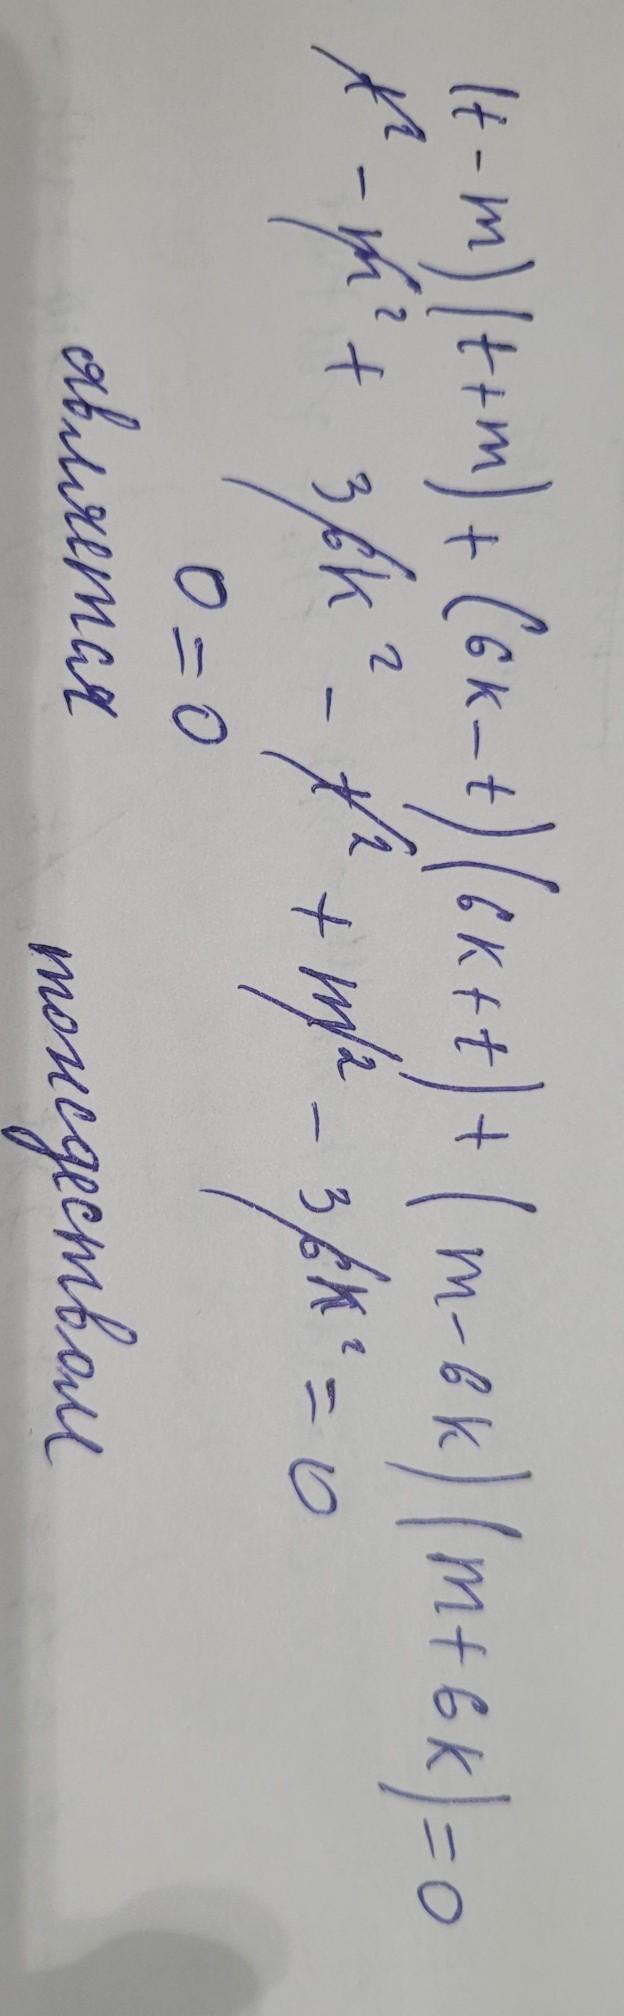 (t-m)(t+m)+(6k-t)(6k+t)+(m-6k)(m+6k)=0
t²-m²+36k²-t²+m²-36k²=0
0=0
является тождеством